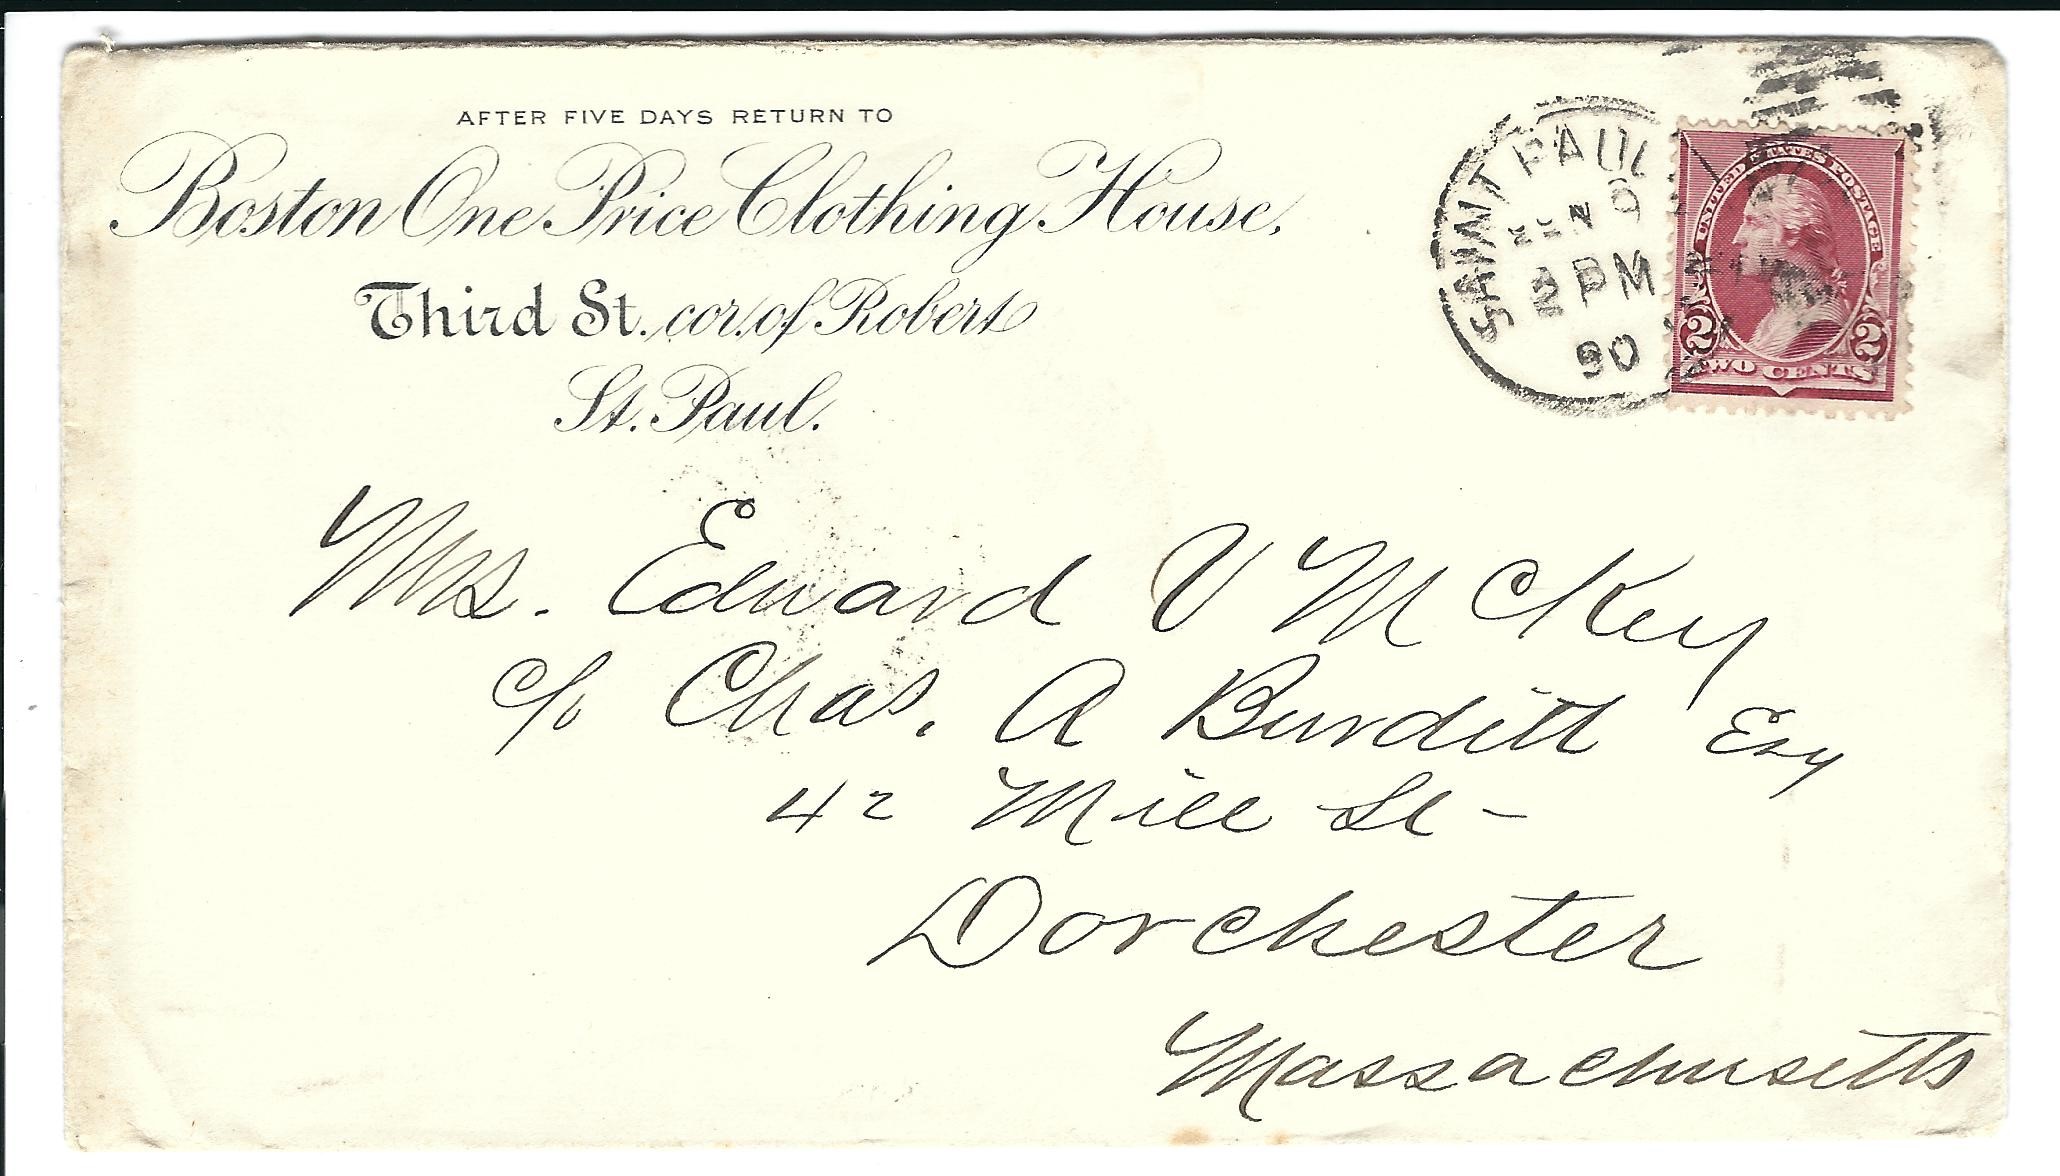 AFTER FIVE DAYS RETURN TO
Boston One Price Clothing House,
Third St. cor. of Robert
St. Paul.
SAINT PAUL
2 PM
90
UNITED STATES POSTAGE
2 2
TWO CENTS
Mrs. Edward V McKey
c/o Chas. A Burditt Esq
42 Mill St -
Dorchester
Massachusetts